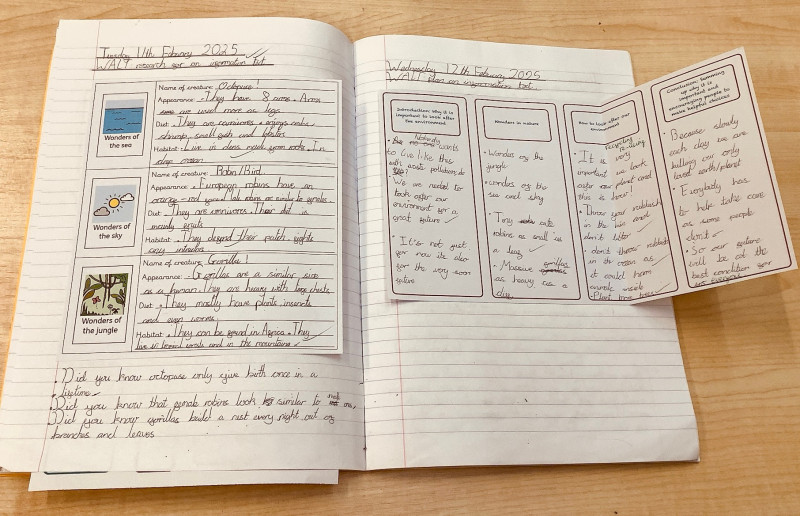 Tuesday 11th February 2025
WALT research for an information text
Name of creature: Octopuse!
Appearance: They have 8 arms. Arms
are used more as legs
Diet: They are carnivores + enjoys
shrimp, small fish and lobsters
Habitat: Live in dens, from rocks. In
deep ocean.
Wonders of
the sea
Name of creature: Robin/Bird.
Appearance: European robins have an
orange-red Male robins are similar to females.
Diet: They are omnivores. Their diet is
mainly
Habitat: They defend their patch, fights
any intruders
Wonders of
the sky
Name of creature: Gorilla!
Appearance: Gorillas are a similar size
as a human. They are heavy with large chests.
Diet: They mostly have plants, insects
and even worms
Habitat: They can be found in Africa. They
live in and in the mountains
Wonders of
the jungle
Did you know octopuse only give birth once in a
lifetime
Did you know that female robins look similar to male ones,
Did you know gorillas build a nest every night out of
branches and leaves
Wednesday 12th February 2025
WALT plan an information text.
Introduction: why it is
important to look after
the environment
Nobody
wants
to live like this
with waste pollution, do
you?
We are needed to
look after our
environment for a
great future
It's not just
for now its also
for the very soon
future
Wonders in nature
Wondas of the
jungle
wondas of the
sea and sky
Tiny cute
robins as small as
a leaf
Massive gorillas
as heavy as a
How to look after our
environment
Recycling
It is very
important we look
after our planet and
this is how!
Throw your rubbish
in the bin and
don't litter
don't throw rubbish
in the ocean as
it could harm
animals inside
Plant more trees
Conclusion: Summing
up why it is
important and
encouraging people to
make helpful choices
Because slowly
each day we are
killing our only
loved earth/planet
Everybody has
to help take care
as some people
don't
So our future
will be at the
best condition for
us everyone